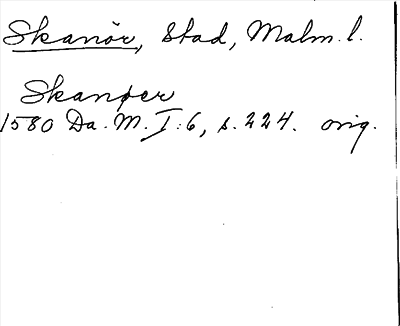 Skanör, Stad, Malm. l.
Skanøer
1580 Da. M. I:6, s. 224. orig.